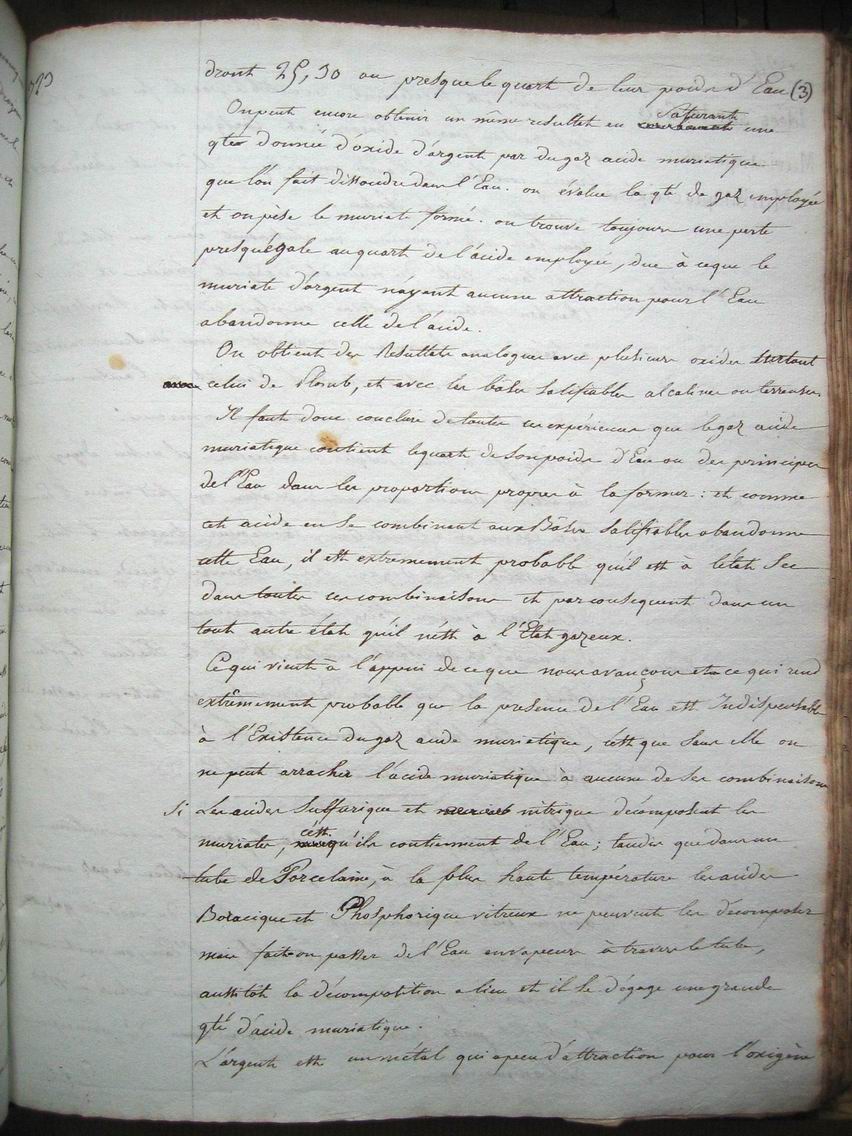 dront 25, 30 ou presque le quart de leur poids d'Eau (3)
On peut encore obtenir un meme resultat en saturant une
qté donnée d'oxide d'argent par du gaz acide muriatique
que l'on fait dissoudre dans l'Eau. on évalue la qté de gaz employée
et on pèse le muriate formé. on trouve toujours une perte
presqu'égale au quart de l'acide employée, due à ceque le
muriate d'argent n'ayant aucune attraction pour l'Eau
abandonne celle de l'acide.
On obtient des Resultats analogues avec plusieurs oxides surtout
avec celui de Plomb, et avec les bases salifiables alcalines ou terreuses.
Il faut donc conclure de toutes ces expériences que le gaz acide
muriatique contient le quart de son poids d'Eau ou des principes
de l'Eau dans les proportions propres à la former : et comme
cet acide en se combinant aux Bâses salifiables abandonne
cette Eau, il est extremement probable qu'il est à l'état sec
dans toutes ces combinaisons et par consequent dans un
tout autre état qu'il n'est à l'Etat gazeux.
Ce qui vient à l'appui de ce que nous avançons et ce qui rend
extrêmement probable que la presence de l'Eau est Indispensable
à l'Existence du gaz acide muriatique, c'est que sans elle on
ne peut arracher l'acide muriatique à aucune de ses combinaisons
Si Les acides sulfurique et nitrique décomposent les
muriates, c'est qu'ils contiennent de l'Eau ; tandis que dans un
tube de Porcelaine, à la plus haute température les acides
Boracique et Phosphorique vitreux ne peuvent les décomposer
mais fait-on passer de l'Eau en vapeurs à travers le tube,
aussitôt la décomposition a lieu et il se dégage une grande
qté d'acide muriatique.
L'argent est un métal qui a peu d'attraction pour l'oxigène